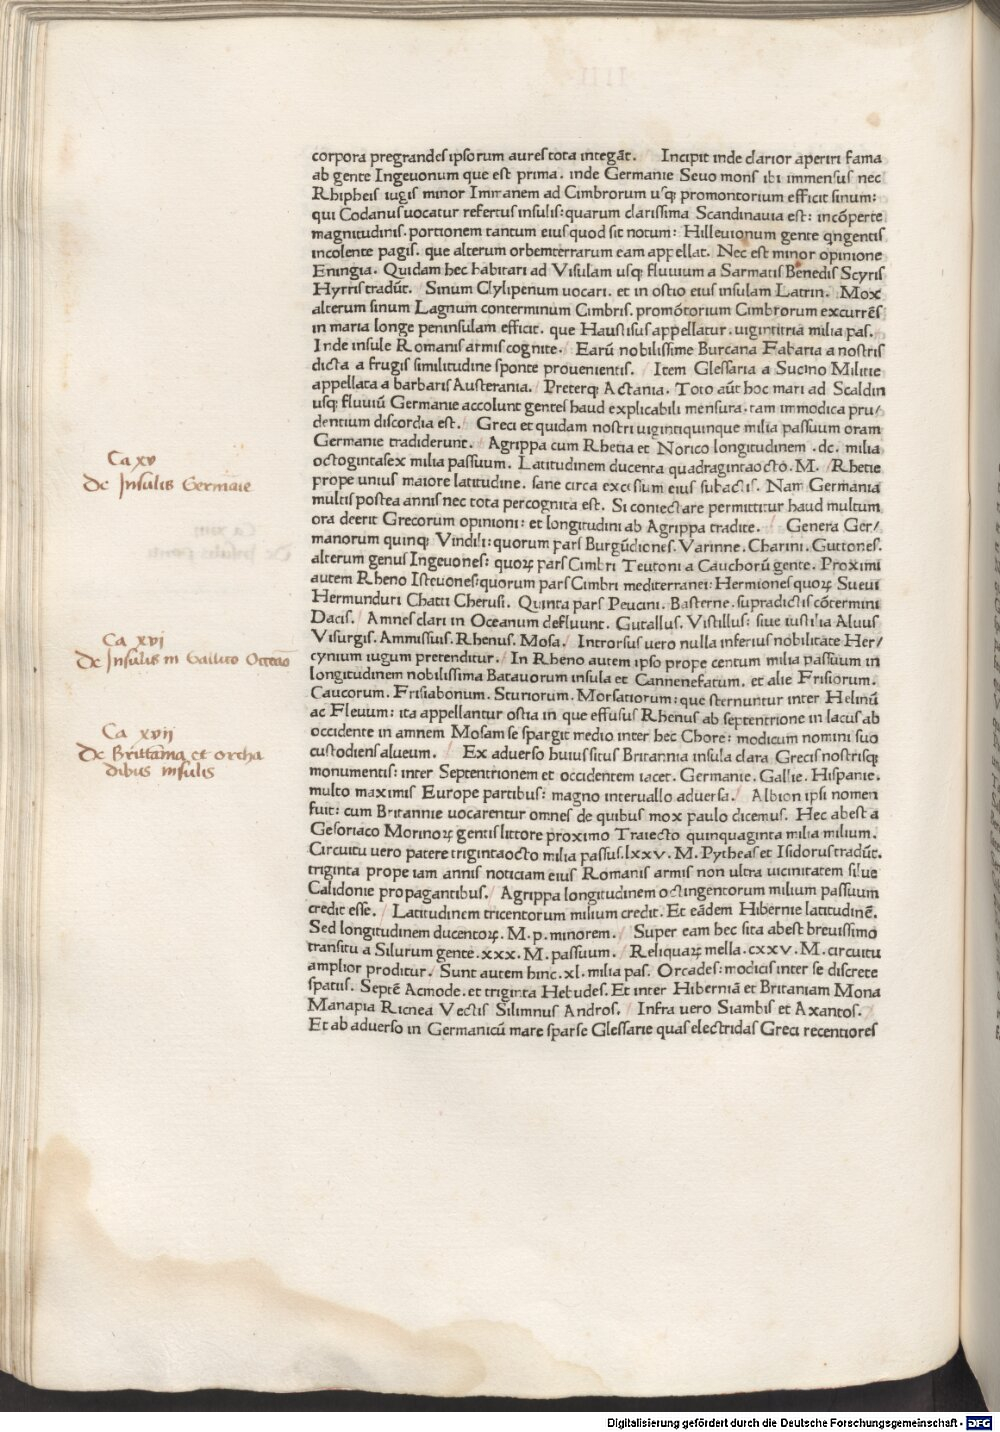 corpora pregrandes ipsorum aures tota integãt. Incipit inde clarior aperiri fama
ab gente Ingeuonum que est prima. inde Germanie Seuo mons ibi immensus nec
Rhipheis iugis minor Immanem ad Cimbrorum usq; promontorium efficit sinum:
qui Codanus uocatur refertus insulis: quarum clarissima Scandinauia est: incõperte
magnitudinis. portionem tantum eius quod sit notum: Hilleuionum gente qngentis
incolente pagis. que alterum orbem terrarum eam appellat. Nec est minor opinione
Eningia. Quidam hec habitari ad Visulam usq; fluuium a Sarmatis Benedis Scyris
Hyrris tradũt. Sinum Clylipenum uocari. et in ostio eius insulam Latrin. Mox
alterum sinum Lagnum conterminum Cimbris. promõtorium Cimbrorum excurrẽs
in maria longe peninsulam efficit. que Hastisus appellatur. uigintitria milia pas.
Inde insule Romanis armis cognite. Earũ nobilissime Burcana Fabaria a nostris
dicta a frugis similitudine sponte prouenientis. Item Glessaria a Sucino Militie
appellata a barbaris Austerania. Preterq; Actania. Toto aũt hoc mari ad Scaldin
usq; fluuiũ Germanie accolunt gentes haud explicabili mensura. tam immodica pru/
dentium discordia est. Greci et quidam nostri uigintiquinque milia passuum oram
Germanie tradiderunt. Agrippa cum Rhetia et Norico longitudinem .dc. milia
octogintasex milia passuum. Latitudinem ducenta quadragintaocto. M. Rhetie
prope unius maiore latitudine. sane circa excisium eius subactis. Nam Germania
multis postea annis nec tota percognita est. Si coniectare permittitur haud multum
ora deerit Grecorum opinioni: et longitudini ab Agrippa tradite. Genera Ger/
manorum quinq; Vindili: quorum pars Burgũdiones. Varinne. Charini. Guttones.
alterum genus Ingeuones: quoꝝ pars Cimbri Teutoni a Cauchorũ gente. Proximi
autem Rheno Isteuones: quorum pars Cimbri mediterranei: Hermiones quoꝝ Sueui
Hermunduri Chatti Cherusi. Quinta pars Peucini. Basterne. supradictis cõtermini
Dacis. Amnes clari in Oceanum defluunt. Gutallus. Vistillus: siue iustilla Aluus
Visurgis. Ammissius. Rhenus. Mosa. Introrsus uero nulla inferius nobilitate Her/
cynium iugum pretenditur. In Rheno autem ipso prope centum milia passuum in
longitudinem nobilissima Batauorum insula et Cannenefatum. et alie Frisiorum.
Caucorum. Frisiabonum. Sturiorum. Morsatiorum: que sternuntur inter Helinũ
ac Fleuum: ita appellantur ostia in que effusus Rhenus ab septentrione in lacus ab
occidente in amnem Mosam se spargit medio inter hec Chore: modicum nomini suo
custodiens alueum. Ex aduerso huius situs Britannia insula clara Grecis nostrisq;
monumentis: inter Septentrionem et occidentem iacet. Germanie. Gallie. Hispanie.
multo maximis Europe partibus: magno interuallo aduersa. Albion ipsi nomen
fuit: cum Britannie uocarentur omnes de quibus mox paulo dicemus. Hec abest a
Gesoriaco Morinoꝝ gentis littore proximo Traiecto quinquaginta milia milium.
Circuitu uero patere trigintaocto milia passus. lxxv. M. Pytheas et Isidorus tradũt.
triginta prope iam annis noticiam eius Romanis armis non ultra uicinitatem silue
Calidonie propagantibus. Agrippa longitudinem octingentorum milium passuum
credit esse. Latitudinem tricentorum milium credit. Et eãdem Hibernie latitudinẽ.
Sed longitudinem ducentoꝝ. M. p. minorem. Super eam hec sita abest breuissimo
transitu a Silurum gente. xxx. M. passuum. Reliquaꝝ mella. cxxv. M. circuitu
amplior proditur. Sunt autem hinc. xl. milia pas. Orcades: modicis inter se discrete
spatiis. Septẽ Acmode. et triginta Hebudes. Et inter Hiberniã et Britaniam Mona
Manapia Ricnea Vectis Silimnus Andros. Infra uero Siambis et Axantos.
Et ab aduerso in Germanicũ mare sparse Glessarie quas electridas Greci recentiores
Ca xv
De Insulis Germaie
Ca xvi
De Insulis in Gallico Occeão
Ca xvii
De Brittãnia et orcha
dibus insulis
Digitalisierung gefördert durch die Deutsche Forschungsgemeinschaft - DFG